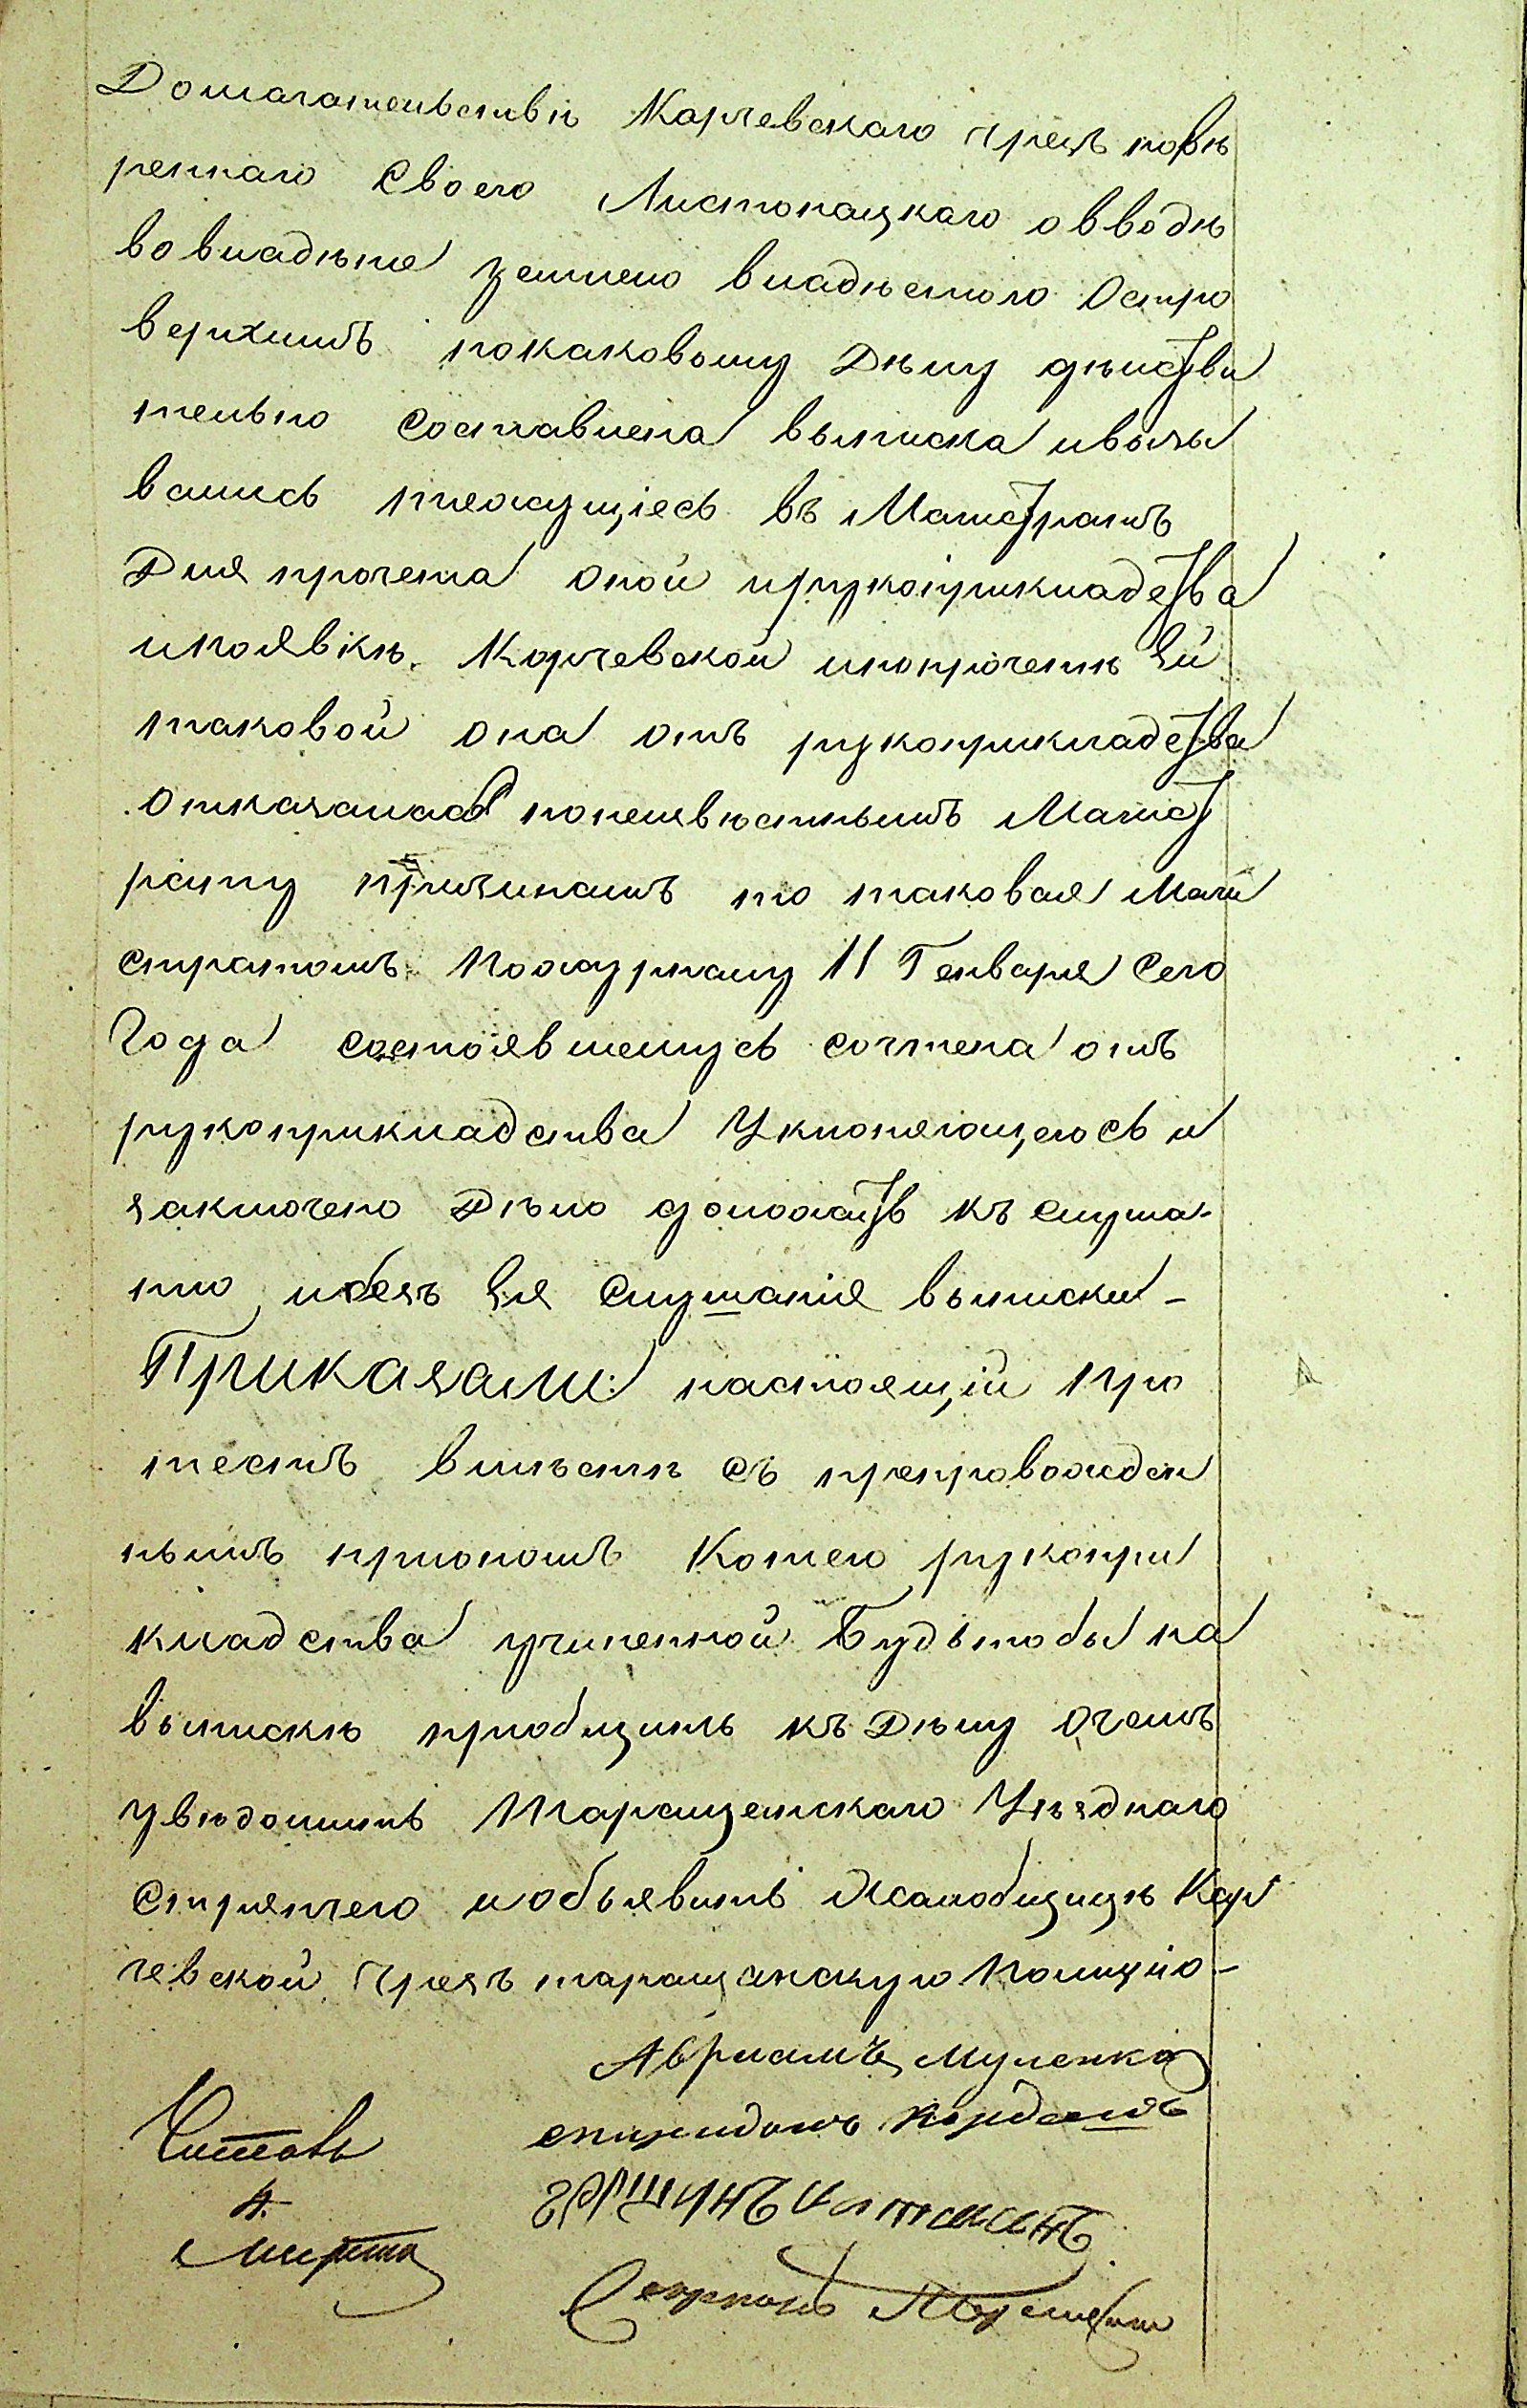 Домагательствѣ Карчевскаго чрезъ повѣ
реннаго своего Листопацкаго овводѣ
во владѣние землею владѣемого Остро
верхимъ покаковому Дѣлу дѣистви
тельно составлена выписка ивызы
вались тяжущіесь въ Магистратъ
Для прочета оной ирукоприкладства
ипоявкѣ Карчевской ипопрочетѣ Ей
таковой она отъ рукоприкладства
отказалась понеизвѣстнымъ Магист
рату причинамъ то таковая Маги
стратомъ Пожурналу 11 Генваря Сего
Года состоявшемусь сочтена отъ
рукоприкладства Уклоняющеюсь и
заключено Дѣло доложить къ слуша-
нію ибезъ Ея слушанія выписки -
Приказали: настоящій про
тестъ вмѣстѣ съ препровожден
нымъ при ономъ Копіею рукопри
кладства учиненной Будьтобы на
выпискѣ приобщить къ Дѣлу очемъ
увѣдомить Таращанскаго Уѣзднаго
стряпчего иобъявить Жалобщицѣ Кар
чевской чрезъ таращанскую Полицію -
Авраамъ Муленко
спиридонъ
Читалъ